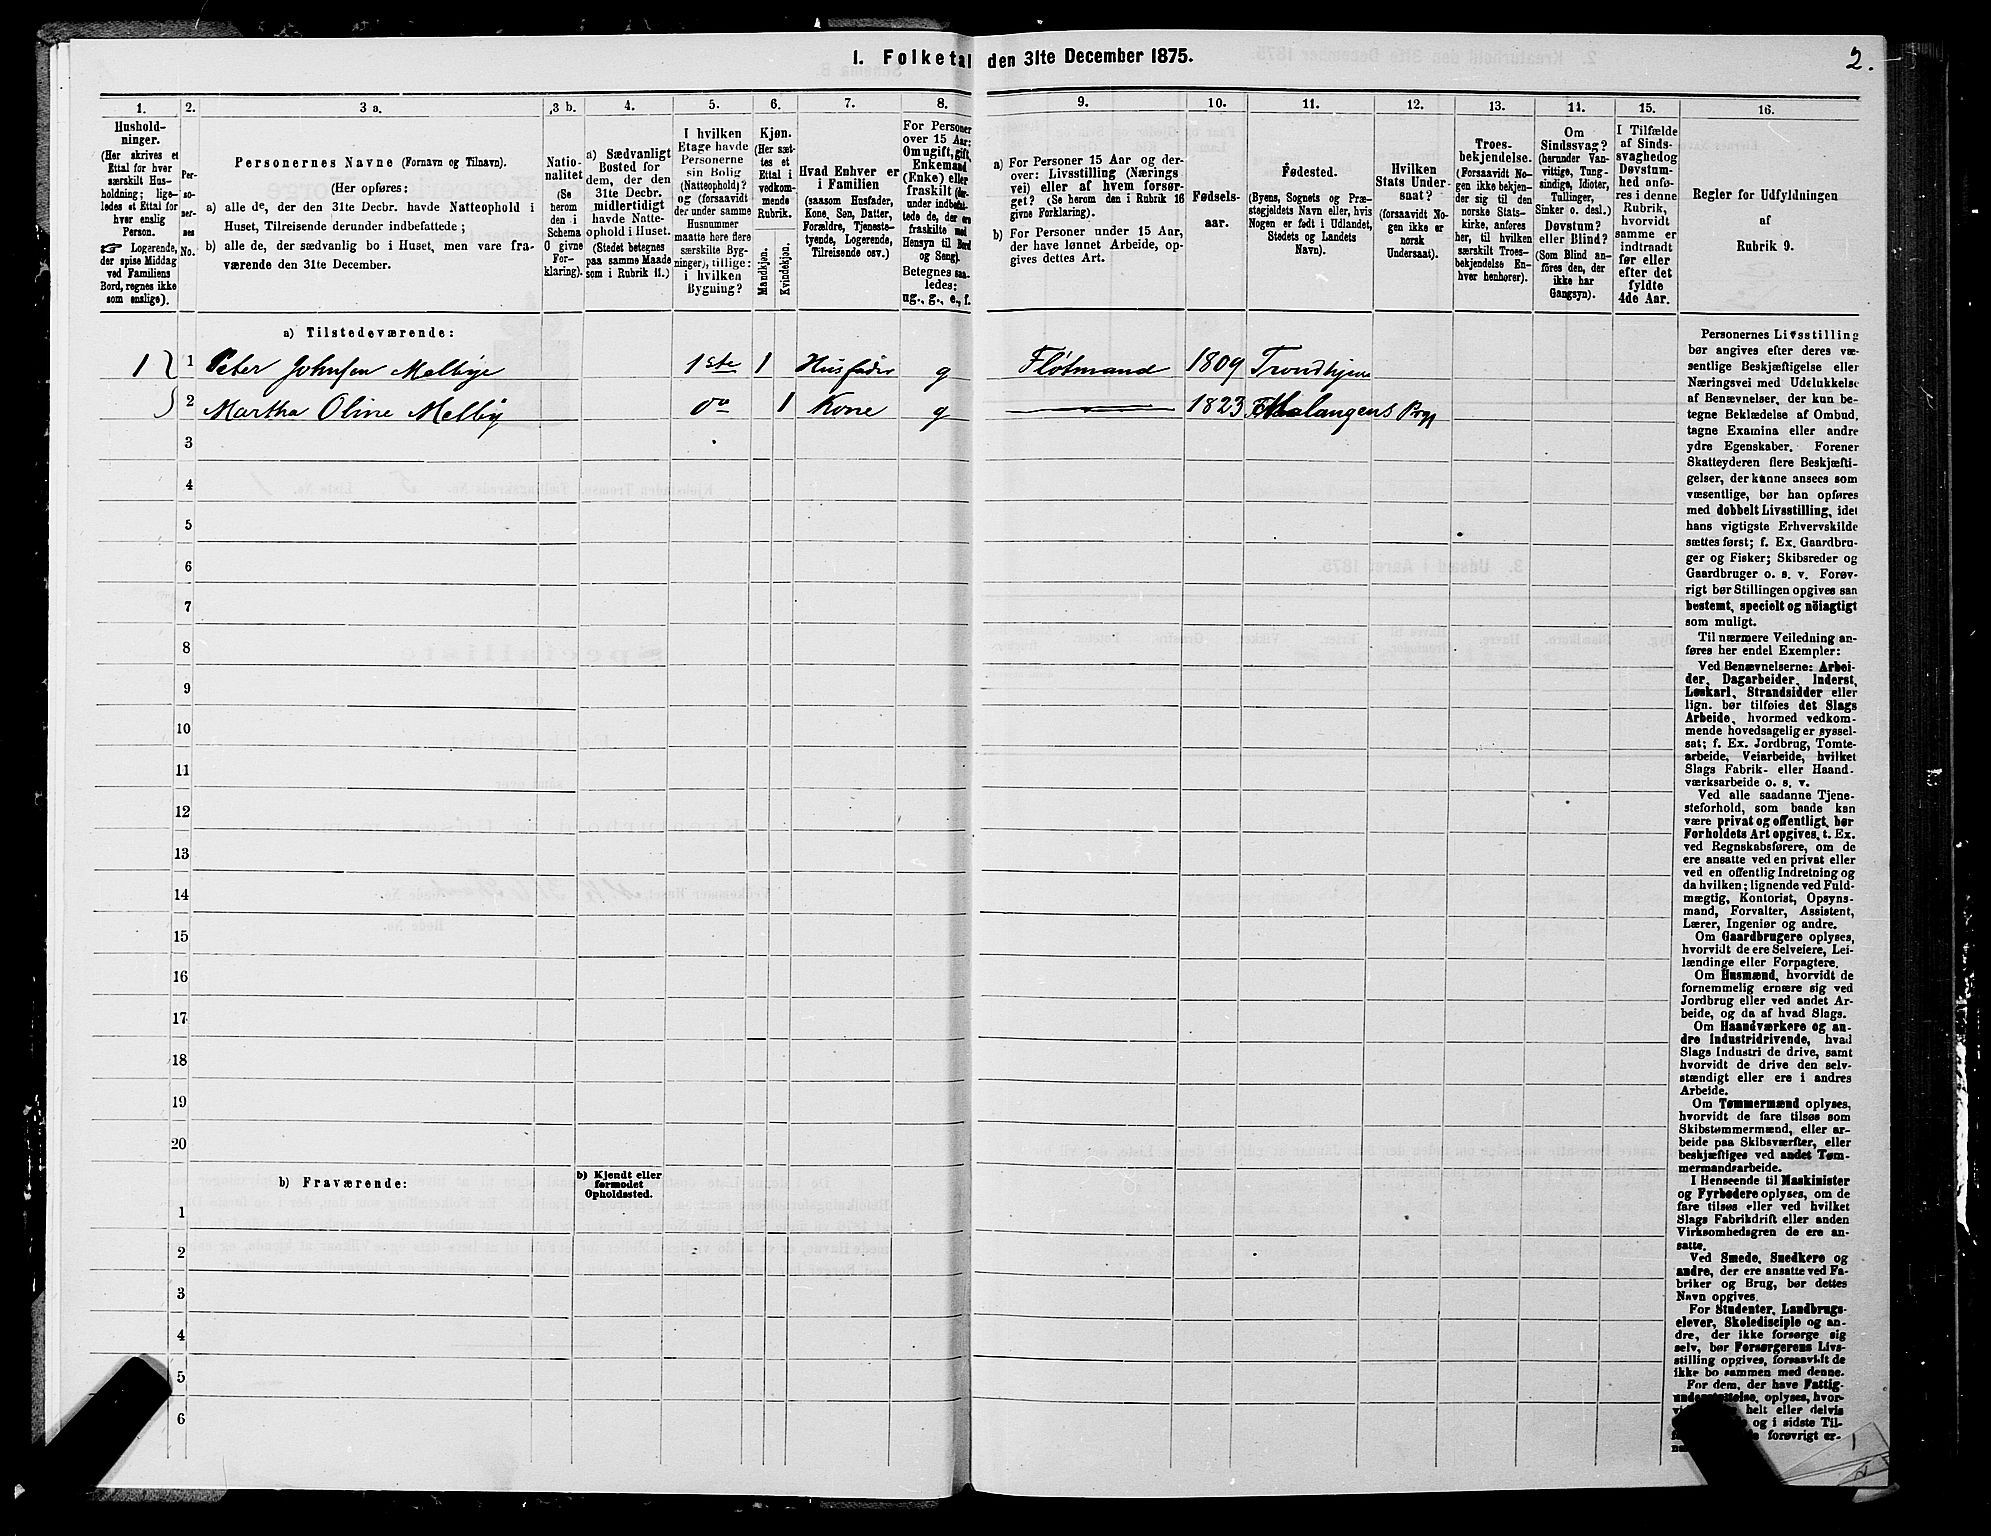 1. Folketal den 31te December 1875.
2.
1. 2. 3 a. 3 b. 4. 5. 6. 7. 8. 9. 10. 11. 12. 13. 14. 15. 16.
Hushold-
ninger.
(Her skrives et
Ettal for hver
særskilt Hus-
holdning; lige-
ledes et Ettal for
hver enslig
Person.
☞ Logerende,
der spise Middag
ved Familiens
Bord, regnes ikke
som enslige).
Per-
so-
ner-
nes
No.
Personernes Navne (Fornavn og Tilnavn).
(Her opføres:
a) alle de, der den 31te Decbr. havde Natteophold i
Huset, Tilreisende derunder indbefattede;
b) alle de, der sædvanlig bo i Huset, men vare fra-
værende den 31te December.
Natio-
nalitet
(Se
herom
den i
Schema
O givne
For-
klaring).
a) Sædvanligt
Bosted for
dem, der den
31te Decbr.
midlertidigt
havde Natte-
ophold i Huset.
(Stedet betegnes
paa samme Maade
som i Rubrik 11.)
I hvilken
Etage havde
Personerne
sin Bolig
(Natteophold)?
og (forsaavidt
der under samme
Husnummer
maatte høre flere
særskilte Byg-
ninger), tillige:
i hvilken
Bygning?
Kjøn.
(Her sæt-
tes et
Ettal i
vedkom-
mende
Rubrik.
Mandkjøn.
Kvindekjøn.
Hvad Enhver er
i Familien
(saasom Husfader,
Kone, Søn, Datter,
Forældre, Tjeneste-
tyende, Logerende,
Tilreisende osv.)
For Personer
over 15 Aar:
Om ugift, gift,
Enkemand
(Enke) eller
fraskilt (der-
under indbefat-
tede de, der ere
fraskilte med
Hensyn til Bord
og Seng).
Betegnes saa-
ledes:
ug., g., e., f.
a) For Personer 15 Aar og der-
over: Livsstilling (Nærings
vei) eller af hvem forsør-
get? (Se herom den i Rubrik 16
givne Forklaring).
b) For Personer under 15 Aar,
der have lønnet Arbeide, op-
gives dettes Art.
Fødsels-
aar.
Fødested.
(Byens, Sognets og Præ-
stegjeldets Navn eller, hvis
Nogen er født i Udlandet,
Stedets og Landets
Navn).
Hvilken
Stats Under-
saat?
(forsaavidt No-
gen ikke er
norsk
Undersaat).
Troes-
bekjendelse.
(Forsaavidt No-
gen ikke bekjen-
der sig til den
norske Stats-
kirke, anføres
her, til hvilken
særskilt Troes-
bekjendelse En-
hver henhører).
Om
Sindssvag?
(herunder Van-
vittige, Tung-
sindige, Idioter,
Tullinger,
Sinker o. desl.)
Døvstum?
eller Blind?
(Som Blind an-
føres den, der
ikke har
Gangsyn).
I Tilfælde
af Sinds-
svaghed og
Døvstum-
hed anfø-
res i denne
Rubrik,
hvorvidt
samme er
indtraadt
før eller
efter det
fyldte
4de Aar.
Regler for Udfyldningen
af
Rubrik 9.
a) Tilstedeværende:
1 1 Peter Johnsen Melbye 1ste 1 Husfader g Flötmand 1809 Trondhjem
2 Martha Oline Melby do 1 Kone g 1823 Malangens Pgj
3
4
5
6
7
8
9
10
11
12
13
14
15
16
17
18
19
20
b) Fraværende:
b) Kjendt eller
formodet
Opholdssted.
1
2
3
4
5
6
Personernes Livsstilling
bør angives efter deres væ-
sentlige Beskjæftigelse eller
Næringsvei med Udelukkelse
af Benævnelser, der kun be-
tegne Beklædelse af Ombud,
tagne Examina eller andre
ydre Egenskaber. Forener
Skatteyderen flere Beskjæfti-
gelser, der kunne ansees som
væsentlige, bør han opføres
med dobbelt Livsstilling, idet
hans vigtigste Erhvervskilde
sættes først; f. Ex. Gaardbru-
ger og Fisker; Skibsreder og
Gaardbruger o. s. v. Forøv-
rigt bør Stillingen opgives saa
bestemt, specielt og nöiagtigt
som muligt.
Til nærmere Veiledning an-
føres her endel Exempler:
Ved Benævnelserne: Arbei-
der, Dagarbeider, Inderst,
Løskarl, Strandsidder eller
lign. bør tilføies det Slags
Arbeide, hvormed vedkom-
mende hovedsagelig er syssel-
sat; f. Ex. Jordbrug, Tomte-
arbeide, Veiarbeide, hvilket
Slags Fabrik- eller Haand-
værksarbeide o. s. v.
Ved alle saadanne Tjene-
steforhold, som baade kan
være privat og offentligt, bør
Forholdets Art opgives, t. Ex.
ved Regnskabsførere, om de
ere ansatte ved en privat eller
ved en offentlig Indretning og
da hvilken; lignende ved Fuld-
mægtig, Kontorist, Opsyns-
mand, Forvalter, Assistent,
Lærer, Ingeniør og andre.
Om Gaardbrugere oplyses,
hvorvidt de ere Selveiere, Lei-
lændinge eller Forpagtere.
Om Husmænd, hvorvidt de
fornemmelig ernære sig ved
Jordbrug eller ved andet Ar-
beide, og da af hvad Slags.
Om Haandværkere og an-
dre Industridrivende, hvad
Slags Industri de drive, samt
hvorvidt de drive den selv-
stændigt eller ere i andres
Arbeide.
Om Tømmermænd oplyses,
hvorvidt de fare tilsøs som
Skibstømmermænd, eller ar-
beide paa Skibsværfter, eller
beskjæftiges ved andet Tøm-
mermandsarbeide.
I Henseende til Maskinister
og Fyrbødere oplyses, om de
fare tilsøs eller ved hvilket
Slags Fabrikdrift eller anden
Virksomhedsgren de ere an-
satte.
Ved Smede, Snedkere og
andre, der ere ansatte ved Fa-
briker og Brug, bør dettes
Navn opgives.
For Studenter, Landbrugs-
elever, Skoledisciple og an-
dre, der ikke forsørge sig
selv, bør Forsørgerens Livs-
stilling opgives, forsaavidt de
ikke bo sammen med denne.
For dem, der have Fattig-
understøttelse, oplyses, hvor-
helt eller delvis
og i sidste Til-
forøvrigt er-